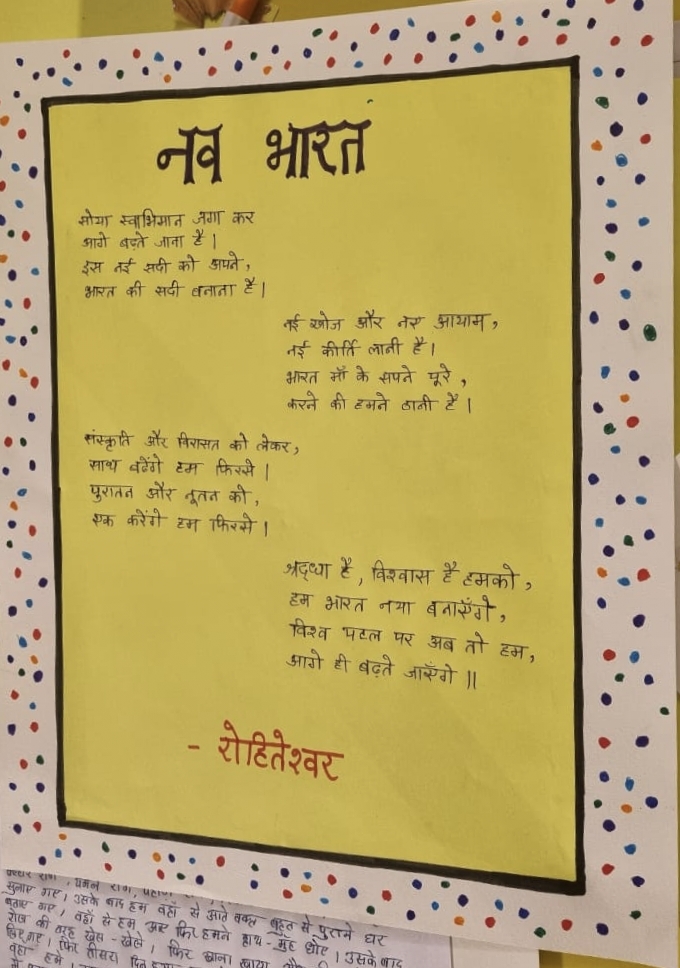 नव भारत
सोया स्वाभिमान जगा कर
आगे बढ़ते जाना है।
इस नई सदी को अपने,
भारत की सदी बनाना है।
नई खोज और नए आयाम,
नई कीर्ति लानी है।
भारत माँ के सपने पूरे,
करने की हमने ठानी है।
संस्कृति और विरासत को लेकर,
साथ बढेंगे हम फिरसे।
पुरातन और नूतन को,
एक करेंगे हम फिरसे।
श्रद्धा है, विश्वास है हमको,
हम भारत नया बनाएँगे,
विश्व पटल पर अब तो हम,
आगे ही बढ़ते जाएँगे॥
- रोहितेश्वर
सुनाए गए। उसके बाद हम वहाँ से आते वक्त बहुत से पुराने घर
बताए गए। वहाँ से हम आए फिर हमने हाथ-मुँह धोए। उसके बाद
रोज की तरह खेल-खेले। फिर खाना खाया
फिर तीसरा दिन